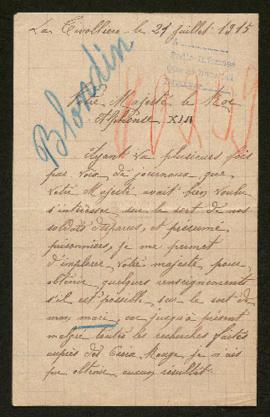 La Tivollière le 21 juillet 1915
Blondin
Votre Majesté le Roi
Alphonse XIII
Ayant vu plusieurs fois
par voix de journaux que
votre Majesté avait bien voulu
s'intéresser sur le sort de nos
soldats disparus, et présumé
prisonniers, je me permet
d'implorer votre majesté pour
obtenir quelques renseignements
s'il est possible, sur le sort de
mon mari, car jusqu'à présent
malgré toutes les recherches faites
auprès des Croix Rouge, je n'ais
pu obtenir aucun résultat.